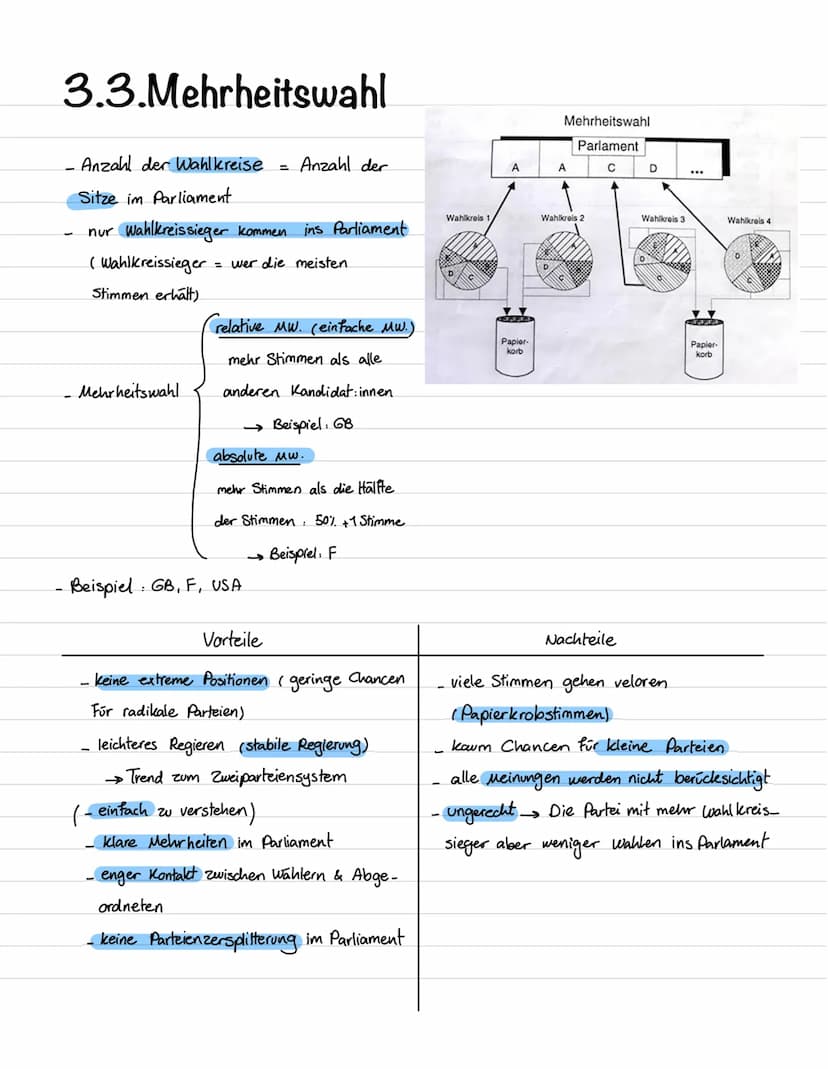 3.3.Mehrheitswahl
- Anzahl der Wahlkreise = Anzahl der
Sitze im Parliament
- nur Wahlkreissieger kommen ins Parliament
( Wahlkreissieger = wer die meisten
Stimmen erhält)
Mehrheitswahl
Parlament
A A C D ...
Wahlkreis 1 Wahlkreis 2 Wahlkreis 3 Wahlkreis 4
Papier-
korb
Papier-
korb
- Mehrheitswahl
relative MW. (einfache MW.)
mehr Stimmen als alle
anderen Kandidat:innen
→ Beispiel: GB
absolute MW.
mehr Stimmen als die Hälfte
der Stimmen : 50% +1 Stimme
→ Beispiel: F
- Beispiel : GB, F, USA
Vorteile
- keine extreme Positionen ( geringe Chancen
für radikale Parteien)
- leichteres Regieren (stabile Regierung)
→ Trend zum Zweiparteiensystem
(- einfach zu verstehen)
- klare Mehrheiten im Parliament
- enger Kontakt zwischen Wählern & Abge-
ordneten
- keine Parteienzersplitterung im Parliament
Nachteile
- viele Stimmen gehen veloren
(Papierkrobstimmen)
- kaum Chancen für kleine Parteien
- alle Meinungen werden nicht berücksichtigt
- ungerecht → Die Partei mit mehr Wahlkreis-
sieger aber weniger Wahlen ins Parlament